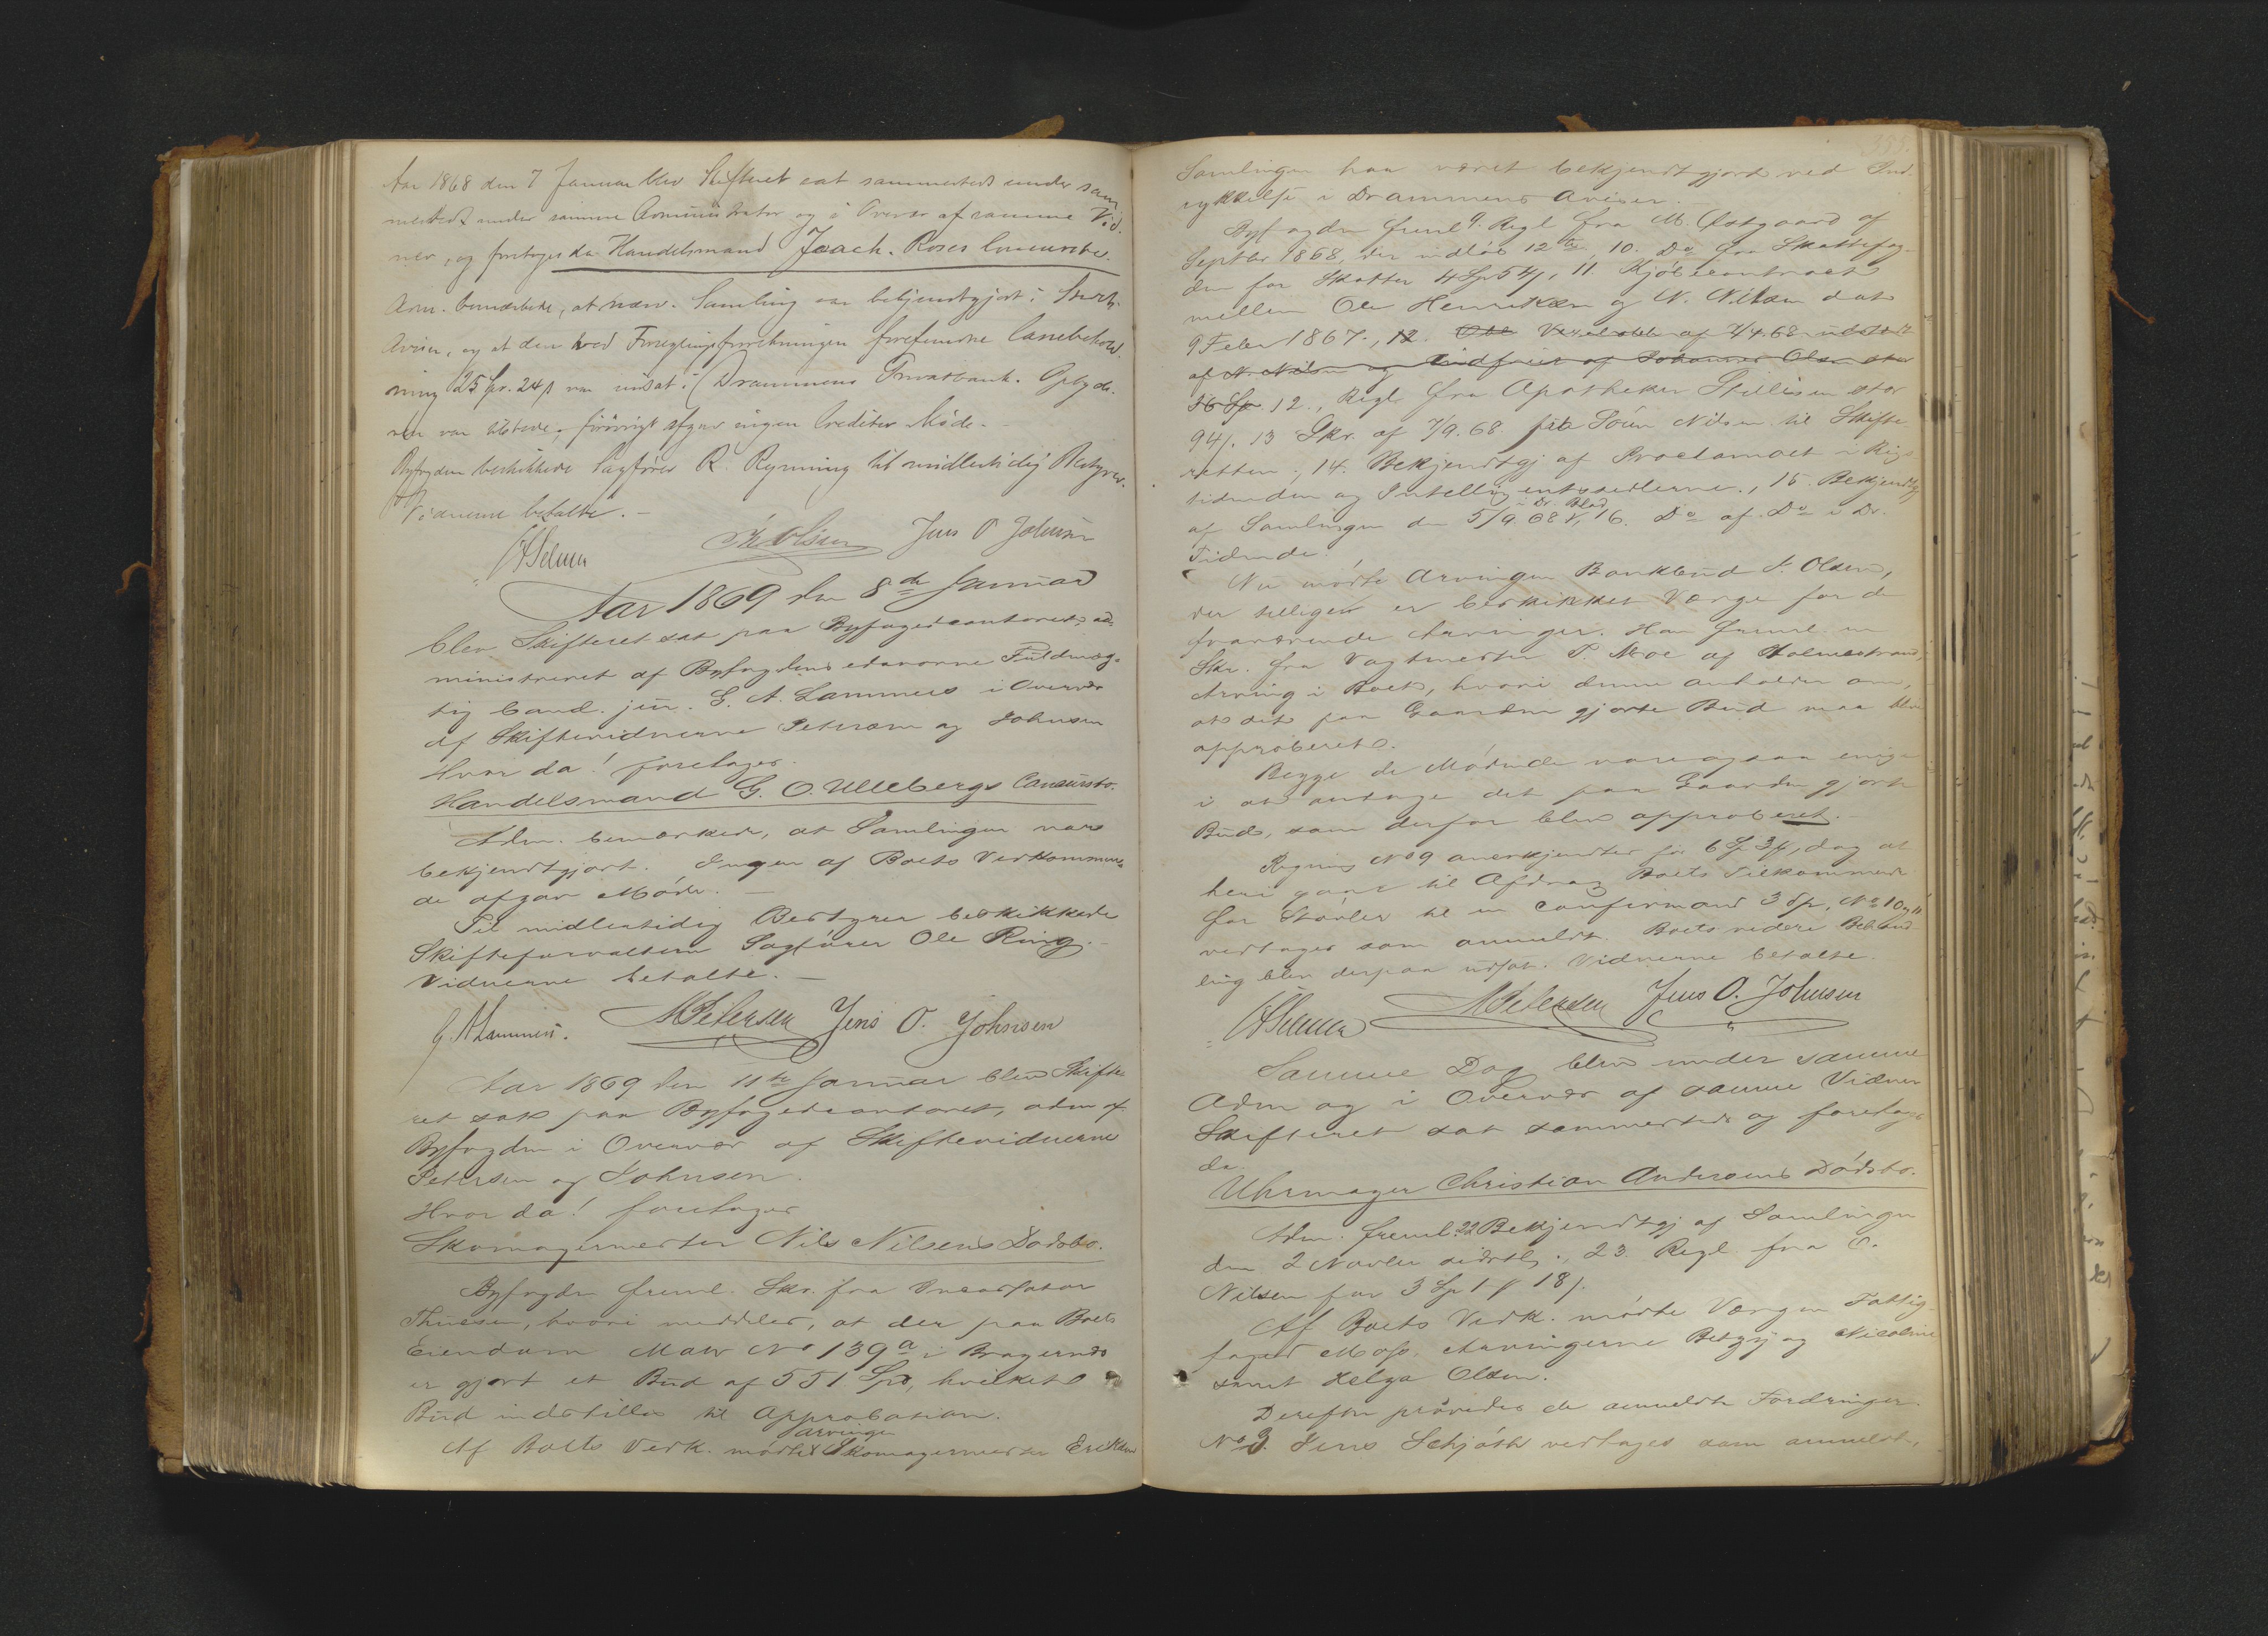 Aar 1868 den 7 Januar blev Skifteret sat sammesteds under sam
mesteds under samme Administrator og i Overvær af samme Vid.
ner, og foretoges da Handelsmand Joach. Roses Concursbo.
Adm. bemærkede, at nærv. Samling var bekjendtgjort i
Aviser, og at den ved Forseglingsforretningen forefundne Cassebehold.
ning 25 Spr. 24 s var indsat i Drammens Privatbank.
var tilstede; forövrigt afgav ingen Creditor Möde.
Byfogden beskikkede Sagförer R. Rynning til midlertidig Bestyrer.
Vidnerne betalte. –
Jens O Johnsen
Aar 1869 den 8de Januar
blev Skifteret sat paa Byfogedcontoret, ad-
ministreret af Byfogdens edsvorne Fuldmæg-
tig Cand. jur. G. A. Lammers i Overvær
af Skiftevidnerne Petersen og Johnsen
Hvor da! foretoges
Handelsmand G. O. Ullebergs Concursbo.
Adm. bemærkede, at Samlingen var
bekjendtgjort. Ingen af Boets Vedkommen-
de afgav Möde. –
Til midlertidig Bestyrer beskikkede
Skifteforvalteren Sagförer Ole Ring. –
Vidnerne betalte. –
G. A. Lammers. M Petersen Jens O. Johnsen
Aar 1869 den 11te Januar blev Skifte
ret sat paa Byfogedcontoret, adm af
Byfogden i Overvær af Skiftevidnerne
Petersen og Johnsen.
Hvor da! foretoges
Skomagermester Nils Nilsens Dödsbo.
Byfogden freml. Skr. fra Incassator
Thuesen, hvori meddeles, at der paa Boets
Eiendom Matr No 139a i Bragernes
er gjort et Bud af 551 Spd, hvilket
Bud indstilles til Approbation.
Arvingen
Af Boets Vedk. mödte Skomagermester Eriksen
Samlingen har været bekjendtgjort ved Ind
rykkelse i Drammens Aviser. –
Byfogden freml 9. Regl fra M. Östgaard af
Septbr 1868, der udlös 12 10. Do fra Skattefog-
den for Skatter 4 Sp 54 s, 11. Kjöbecontract
mellem Ole Henriksen og N. Nilsen dat
9 Febr 1867., 12. Obl af 7/4.68 udstedt
af N. Nilsen og af Johannes Olsen stor
36 Sp. 12., Regl. fra Apotheker stor
94 s. 13 Skr. af 7/9.68 fra Sören Nilsen til Skifte
retten; 14. Bekjendtgj af Proclamaet i Rigs
tidenden og Intelligentssedlerne., 15. Bekjendtg
i Dr. Blad
af Samlingen den 5/9 68 16. Do af Do i Dr.
Tidende.
Nu mödte Arvingen Bankbud S. Olsen,
der tilligem er beskikket Værge for de
fraværende Arvinger. Han freml en
Skr. fra Vagtmester P. Moe af Holmestrand,
Arving i Boet, hvori denne anholder om,
at det paa Gaarden gjorte Bud maa blive
approberet.
Begge de Mödende vare ogsaa enige
i at antage det paa Gaarden gjorte
Bud, som derfor blev approberet. –
Regning No 9 anerkjendtes for 6 Sp 34 s, dog at
heri gaar til Afdrag Boets Tilkommende
for Stövler til en Confirmand 3 Sp, No 10 og 11
vedtages som anmeldt. Boets videre Behand-
ling blev derpaa udsat. Vidnerne betalte.
M Petersen Jens O. Johnsen
Samme Dag blev under samme
Adm og i Overvær af samme Vidner
Skifteret sat sammesteds og foretoges
da
Uhrmager Christian Andersens Dödsbo.
Adm. freml. 22 Bekjendtgj af Samlingen
den 2 Novbr sidstl., 23. Regl. fra C.
Nilsen for 3 Sp 1 18 s.
Af Boets Vedk. mödte Værgen Fattig-
foged Moss. Arvingerne Betzy og Nicoline
samt Helga Olsen.
Derefter prövedes de anmeldte Fordringer.
No 3. Jens Schjöth vedtages som anmeldt,